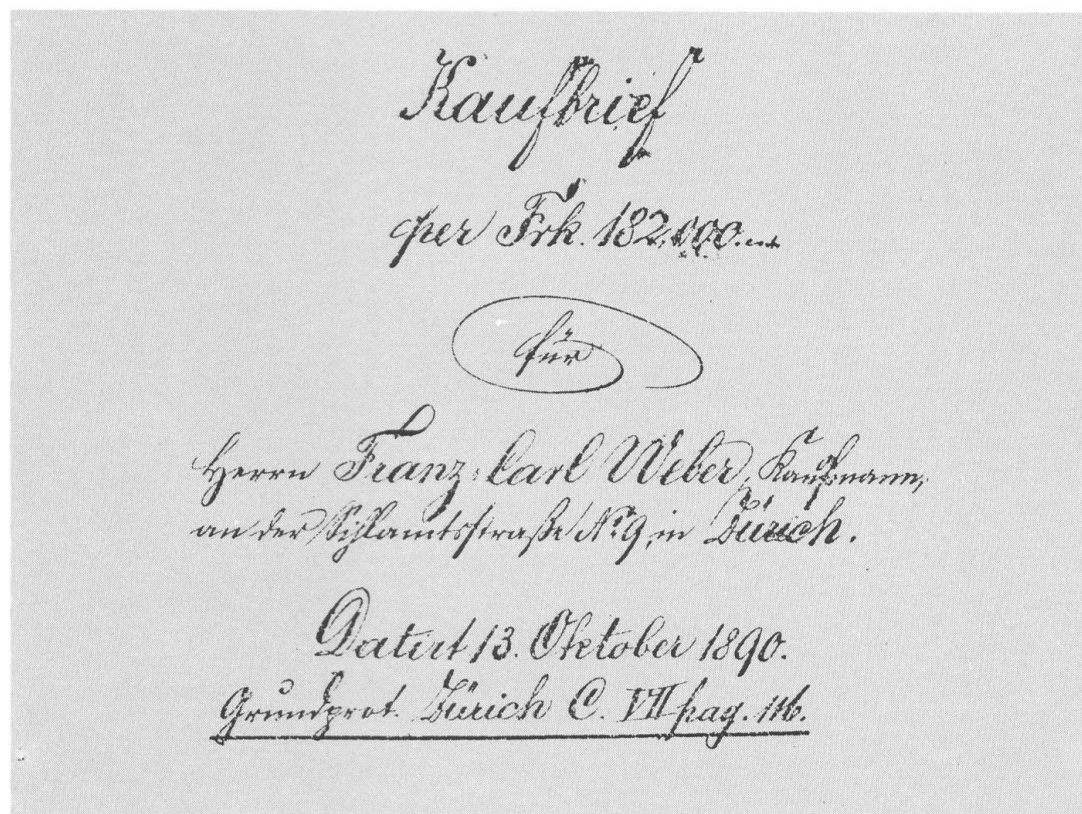 Kaufbrief
per Frk. 182,000.--
für
Herrn Franz-Carl Weber, Kaufmann,
an der Sihlamtsstraße No. 9, in Zürich.
Datirt 13. Oktober 1890.
Grundprot. Zürich C. VII pag. 116.